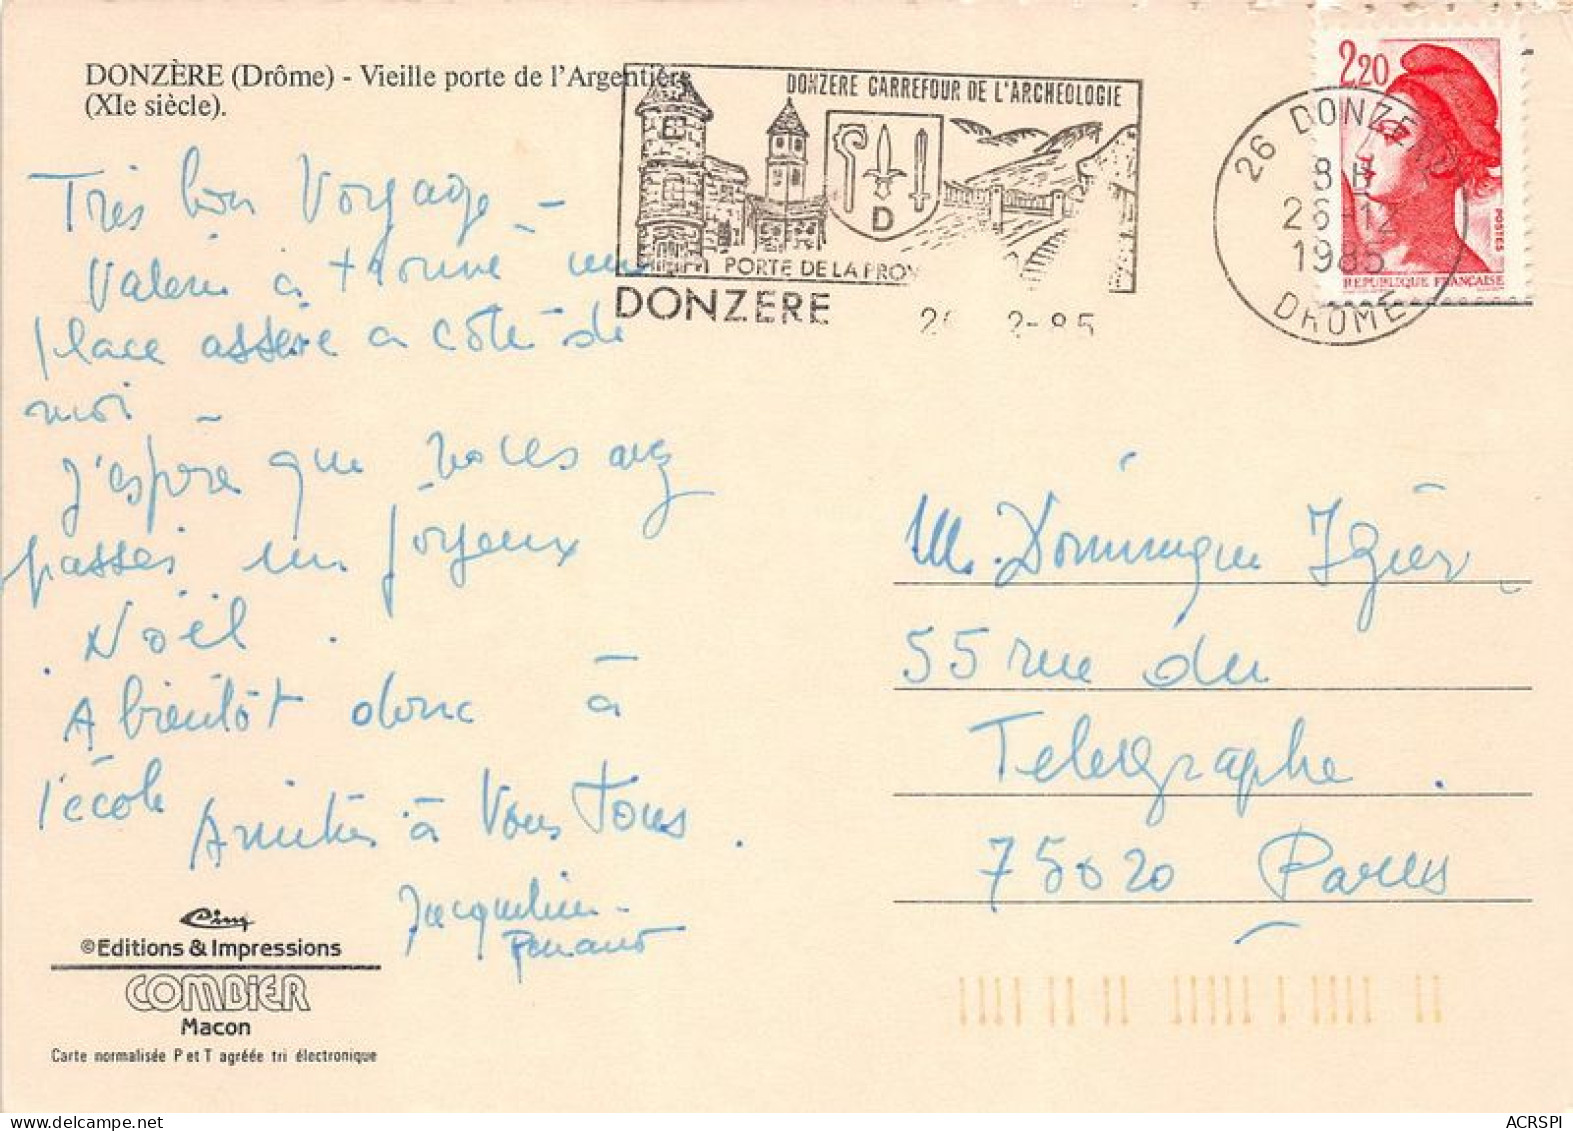 DONZÈRE (Drôme) - Vieille porte de l'Argentière
(XIe siècle).
DONZERE CARREFOUR DE L'ARCHEOLOGIE
D
PORTE DE LA PROV
DONZERE
2-85
2,20
POSTES
REPUBLIQUE FRANÇAISE
26 DONZERE
8 H
26-12
1985
DROME
Très bon Voyage -
Valérie a trouvé une
place assise a côté de
moi -
J'espère que vous avez
passés un joyeux
Noël.
A bientôt donc à
l'école
Amitiés à Vous Tous.
Jacqueline
Renaud
M. Dominique
55 rue du
Telegraphe.
75020 Paris
Cim
©Editions & Impressions
COMBIER
Macon
Carte normalisée P et T agréée tri électronique
ACRSPI